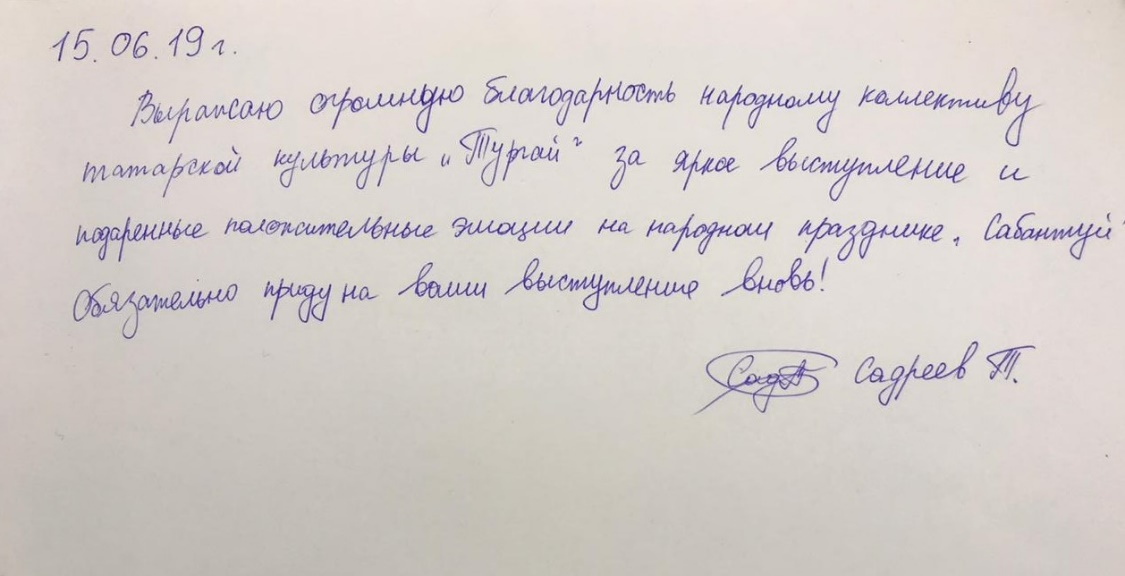 15.06.19 г.
Выражаю огромную благодарность народному коллективу
татарской культуры „Тургай" за яркое выступление и
подаренные положительные эмоции на народном празднике „Сабантуй"
Обязательно приду на ваши выступление вновь!
СадТ Садреев Т.